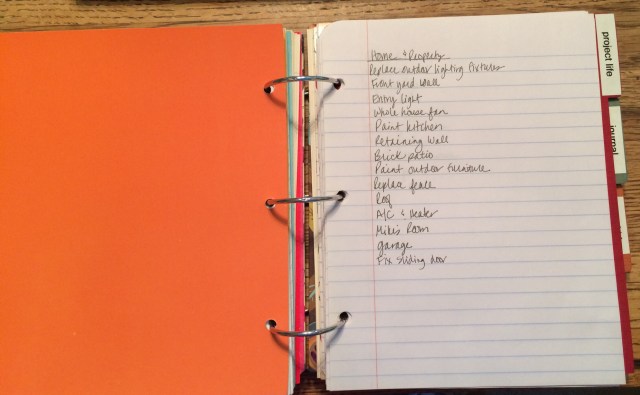 Home & Property
Replace outdoor lighting fixtures
Front yard wall
Entry light
Whole house fan
Paint kitchen
Retaining wall
Brick patio
Paint outdoor furniture
Replace fence
Roof
A/C & Heater
Mike's Room
garage
Fix sliding door
project life
journal